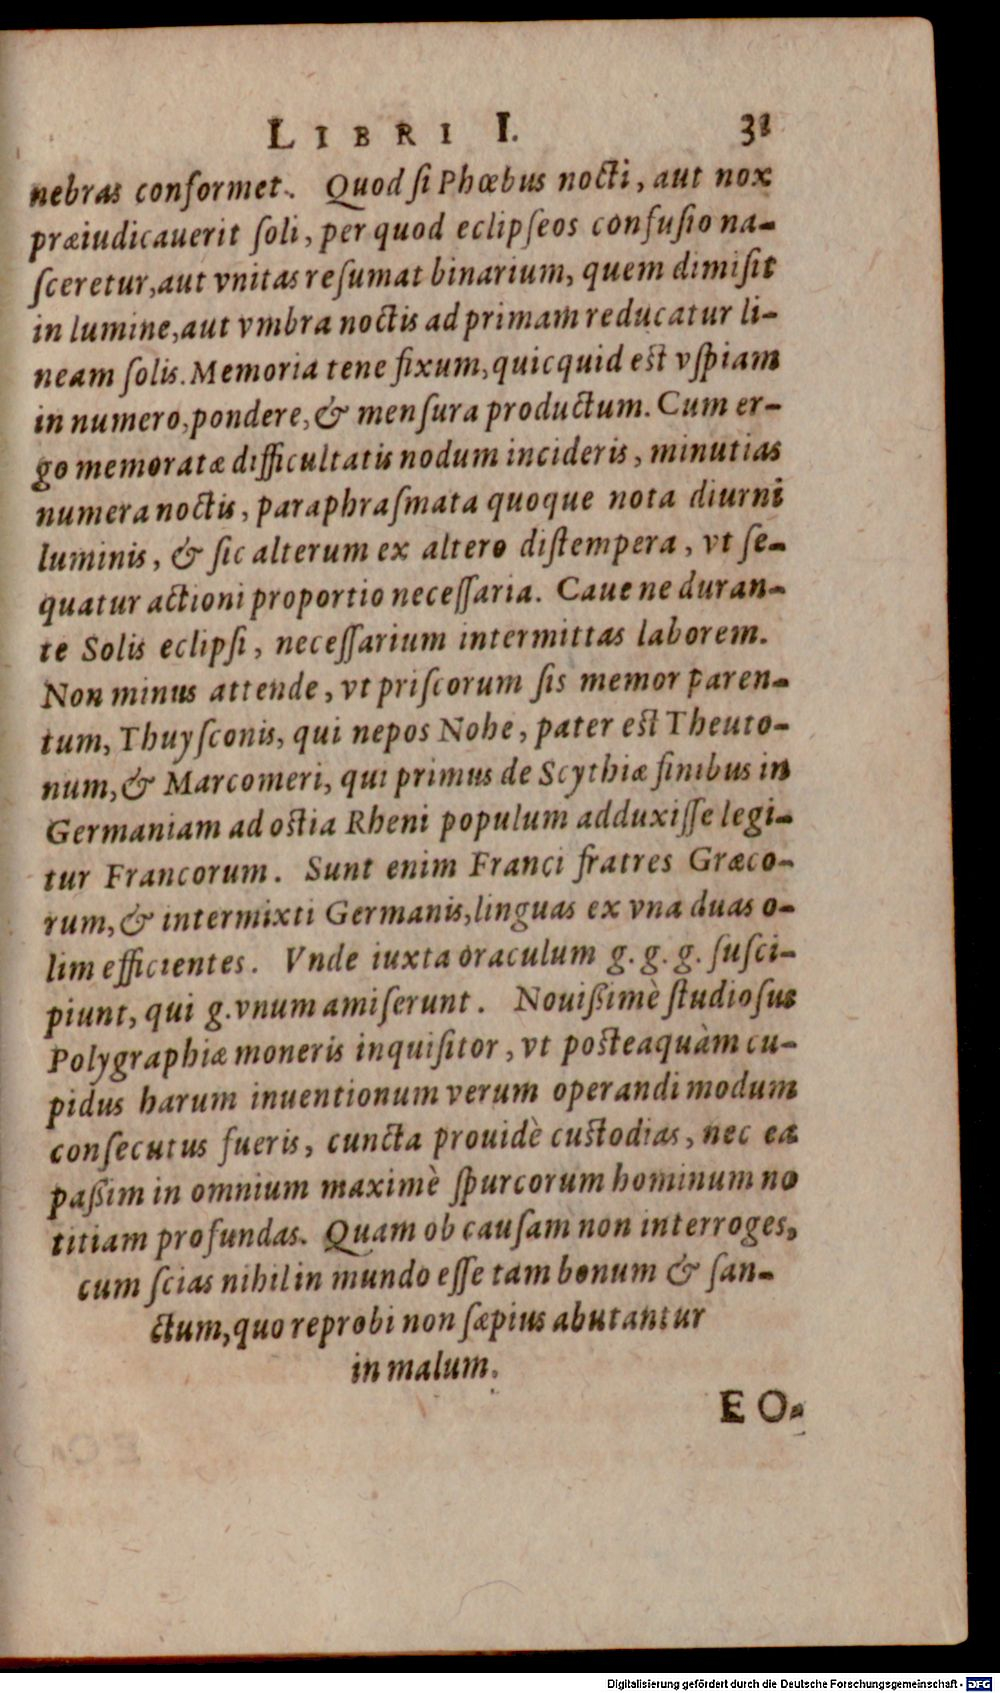 LIBRI I. 31
nebras conformet. Quod ſi Phœbus nocti, aut nox
præiudicauerit ſoli, per quod eclipſeos confuſio na-
ſceretur, aut vnitas reſumat binarium, quem dimiſit
in lumine, aut vmbra noctis ad primam reducatur li-
neam ſolis. Memoria tene fixum, quicquid est vſpiam
in numero, pondere, & menſura productum. Cum er-
go memoratæ difficultatis nodum incideris, minutias
numera noctis, paraphraſmata quoque nota diurni
luminis, & ſic alterum ex altero diſtempera, vt ſe-
quatur actioni proportio neceſſaria. Caue ne duran-
te Solis eclipſi, neceſſarium intermittas laborem.
Non minus attende, vt priſcorum ſis memor paren-
tum, Thuyſconis, qui nepos Nohe, pater est Theuto-
num, & Marcomeri, qui primus de Scythiæ finibus in
Germaniam ad ostia Rheni populum adduxiſſe legi-
tur Francorum. Sunt enim Franci fratres Græco-
rum, & intermixti Germanis, linguas ex vna duas o-
lim efficientes. Vnde iuxta oraculum g. g. g. ſuſci-
piunt, qui g. vnum amiſerunt. Nouiſſimè ſtudioſus
Polygraphiæ moneris inquiſitor, vt posteaquàm cu-
pidus harum inuentionum verum operandi modum
conſecutus fueris, cuncta prouidè custodias, nec ea
paſſim in omnium maximè ſpurcorum hominum no
titiam profundas. Quam ob cauſam non interroges,
cum ſcias nihil in mundo eſſe tam bonum & ſan-
ctum, quo reprobi non ſæpius abutantur
in malum.
EO-
Digitalisierung gefördert durch die Deutsche Forschungsgemeinschaft - DFG